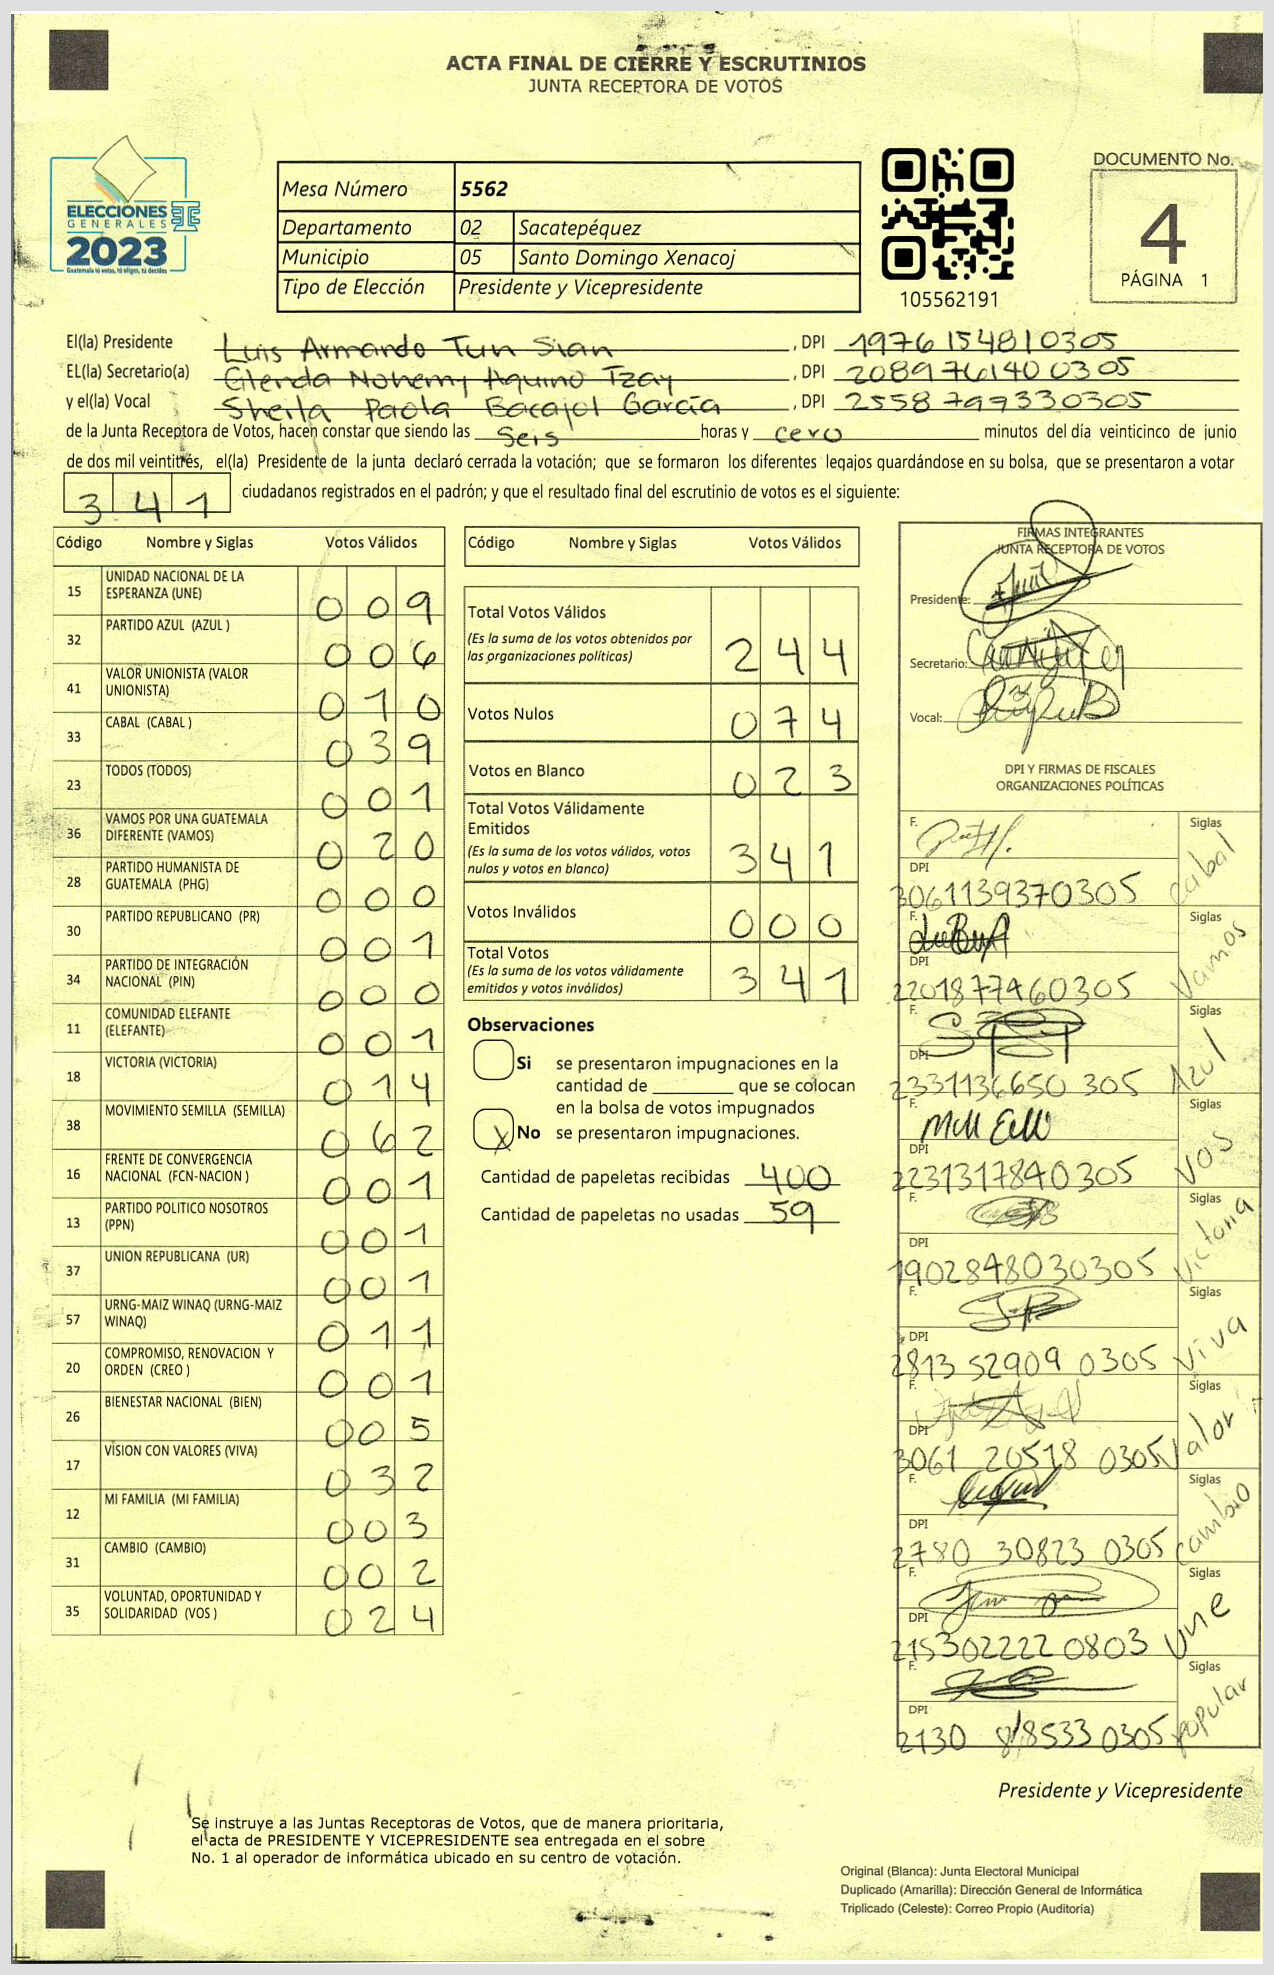 ACTA FINAL DE CIERRE Y ESCRUTINIOS
JUNTA RECEPTORA DE VOTOS
ELECCIONES
GENERALES
2023
Guatemala tú votas, tú eliges, tú decides
Mesa Número 5562
Departamento 02 Sacatepéquez
Municipio 05 Santo Domingo Xenacoj
Tipo de Elección Presidente y Vicepresidente
105562191
DOCUMENTO No.
4
PÁGINA 1
El(la) Presidente Luis Armando Tun Sian , DPI 1976 15481 0305
EL(la) Secretario(a) Glenda Nohemy Aquino Tzay , DPI 2089 76140 0305
y el(la) Vocal Sheila Paola Bacajol García , DPI 2558 79933 0305
de la Junta Receptora de Votos, hacen constar que siendo las seis horas y cero minutos del día veinticinco de junio
de dos mil veintitrés, el(la) Presidente de la junta declaró cerrada la votación; que se formaron los diferentes legajos guardándose en su bolsa, que se presentaron a votar
341 ciudadanos registrados en el padrón; y que el resultado final del escrutinio de votos es el siguiente:
Código Nombre y Siglas Votos Válidos
15 UNIDAD NACIONAL DE LA ESPERANZA (UNE) 009
32 PARTIDO AZUL (AZUL ) 006
41 VALOR UNIONISTA (VALOR UNIONISTA) 010
33 CABAL (CABAL ) 039
23 TODOS (TODOS) 001
36 VAMOS POR UNA GUATEMALA DIFERENTE (VAMOS) 020
28 PARTIDO HUMANISTA DE GUATEMALA (PHG) 000
30 PARTIDO REPUBLICANO (PR) 001
34 PARTIDO DE INTEGRACIÓN NACIONAL (PIN) 000
11 COMUNIDAD ELEFANTE (ELEFANTE) 001
18 VICTORIA (VICTORIA) 014
38 MOVIMIENTO SEMILLA (SEMILLA) 062
16 FRENTE DE CONVERGENCIA NACIONAL (FCN-NACION ) 001
13 PARTIDO POLITICO NOSOTROS (PPN) 001
37 UNION REPUBLICANA (UR) 001
57 URNG-MAIZ WINAQ (URNG-MAIZ WINAQ) 011
20 COMPROMISO, RENOVACION Y ORDEN (CREO ) 001
26 BIENESTAR NACIONAL (BIEN) 005
17 VISION CON VALORES (VIVA) 032
12 MI FAMILIA (MI FAMILIA) 003
31 CAMBIO (CAMBIO) 002
35 VOLUNTAD, OPORTUNIDAD Y SOLIDARIDAD (VOS ) 024
Código Nombre y Siglas Votos Válidos
Total Votos Válidos 244
(Es la suma de los votos obtenidos por
las organizaciones políticas)
Votos Nulos 074
Votos en Blanco 023
Total Votos Válidamente
Emitidos 341
(Es la suma de los votos válidos, votos
nulos y votos en blanco)
Votos Inválidos 000
Total Votos 341
(Es la suma de los votos válidamente
emitidos y votos inválidos)
Observaciones
Si se presentaron impugnaciones en la
cantidad de ________ que se colocan
en la bolsa de votos impugnados
X No se presentaron impugnaciones.
Cantidad de papeletas recibidas 400
Cantidad de papeletas no usadas 59
FIRMAS INTEGRANTES
JUNTA RECEPTORA DE VOTOS
Presidente:
Secretario:
Vocal:
DPI Y FIRMAS DE FISCALES
ORGANIZACIONES POLÍTICAS
F. Siglas cabal
DPI 3061139370305
F. Siglas Vamos
DPI 2201877460305
F. Siglas Azul
DPI 2331136650 305
F. Siglas VOS
DPI 2231317840305
F. Siglas Victoria
DPI 1902848030305
F. Siglas Viva
DPI 2813 52909 0305
F. Siglas Valor
DPI 3061 20518 0305
F. Siglas Cambio
DPI 2780 30823 0305
F. Siglas Une
DPI 215302222 0803
F. Siglas popular
DPI 2130 0305
Presidente y Vicepresidente
Se instruye a las Juntas Receptoras de Votos, que de manera prioritaria,
el acta de PRESIDENTE Y VICEPRESIDENTE sea entregada en el sobre
No. 1 al operador de informática ubicado en su centro de votación.
Original (Blanca): Junta Electoral Municipal
Duplicado (Amarilla): Dirección General de Informática
Triplicado (Celeste): Correo Propio (Auditoria)